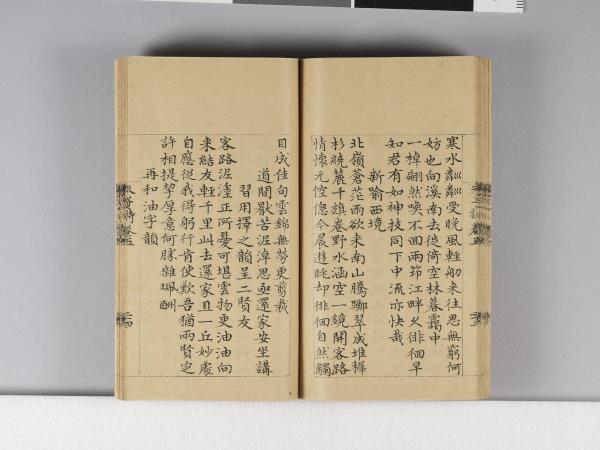 寒水粼粼受晚風輕舠來往思無窮何
妨也向溪南去徙倚空林暮靄中
一棹翩然喚不回兩筇江畔久徘徊早
知君有如神技同下中流亦快哉
新喻西境
北嶺蒼茫雨欲來南山騰擲翠成堆穉
杉繞麓千旗卷野水涵空一鏡開客路
情懷元倥傯今晨遊眺却徘徊自然觸
目成佳句雲錦無勞更剪裁
道間厭苦泥淖思亟還家安坐講
習用擇之韻呈二賢友
客路泥塗正所憂可堪雲物更油油向
來結友輕千里此去還家且一丘妙處
自應從我得躬行肯使歎吾猶兩賢定
許相提挈厚意何勝雜珮酬
再和油字韻